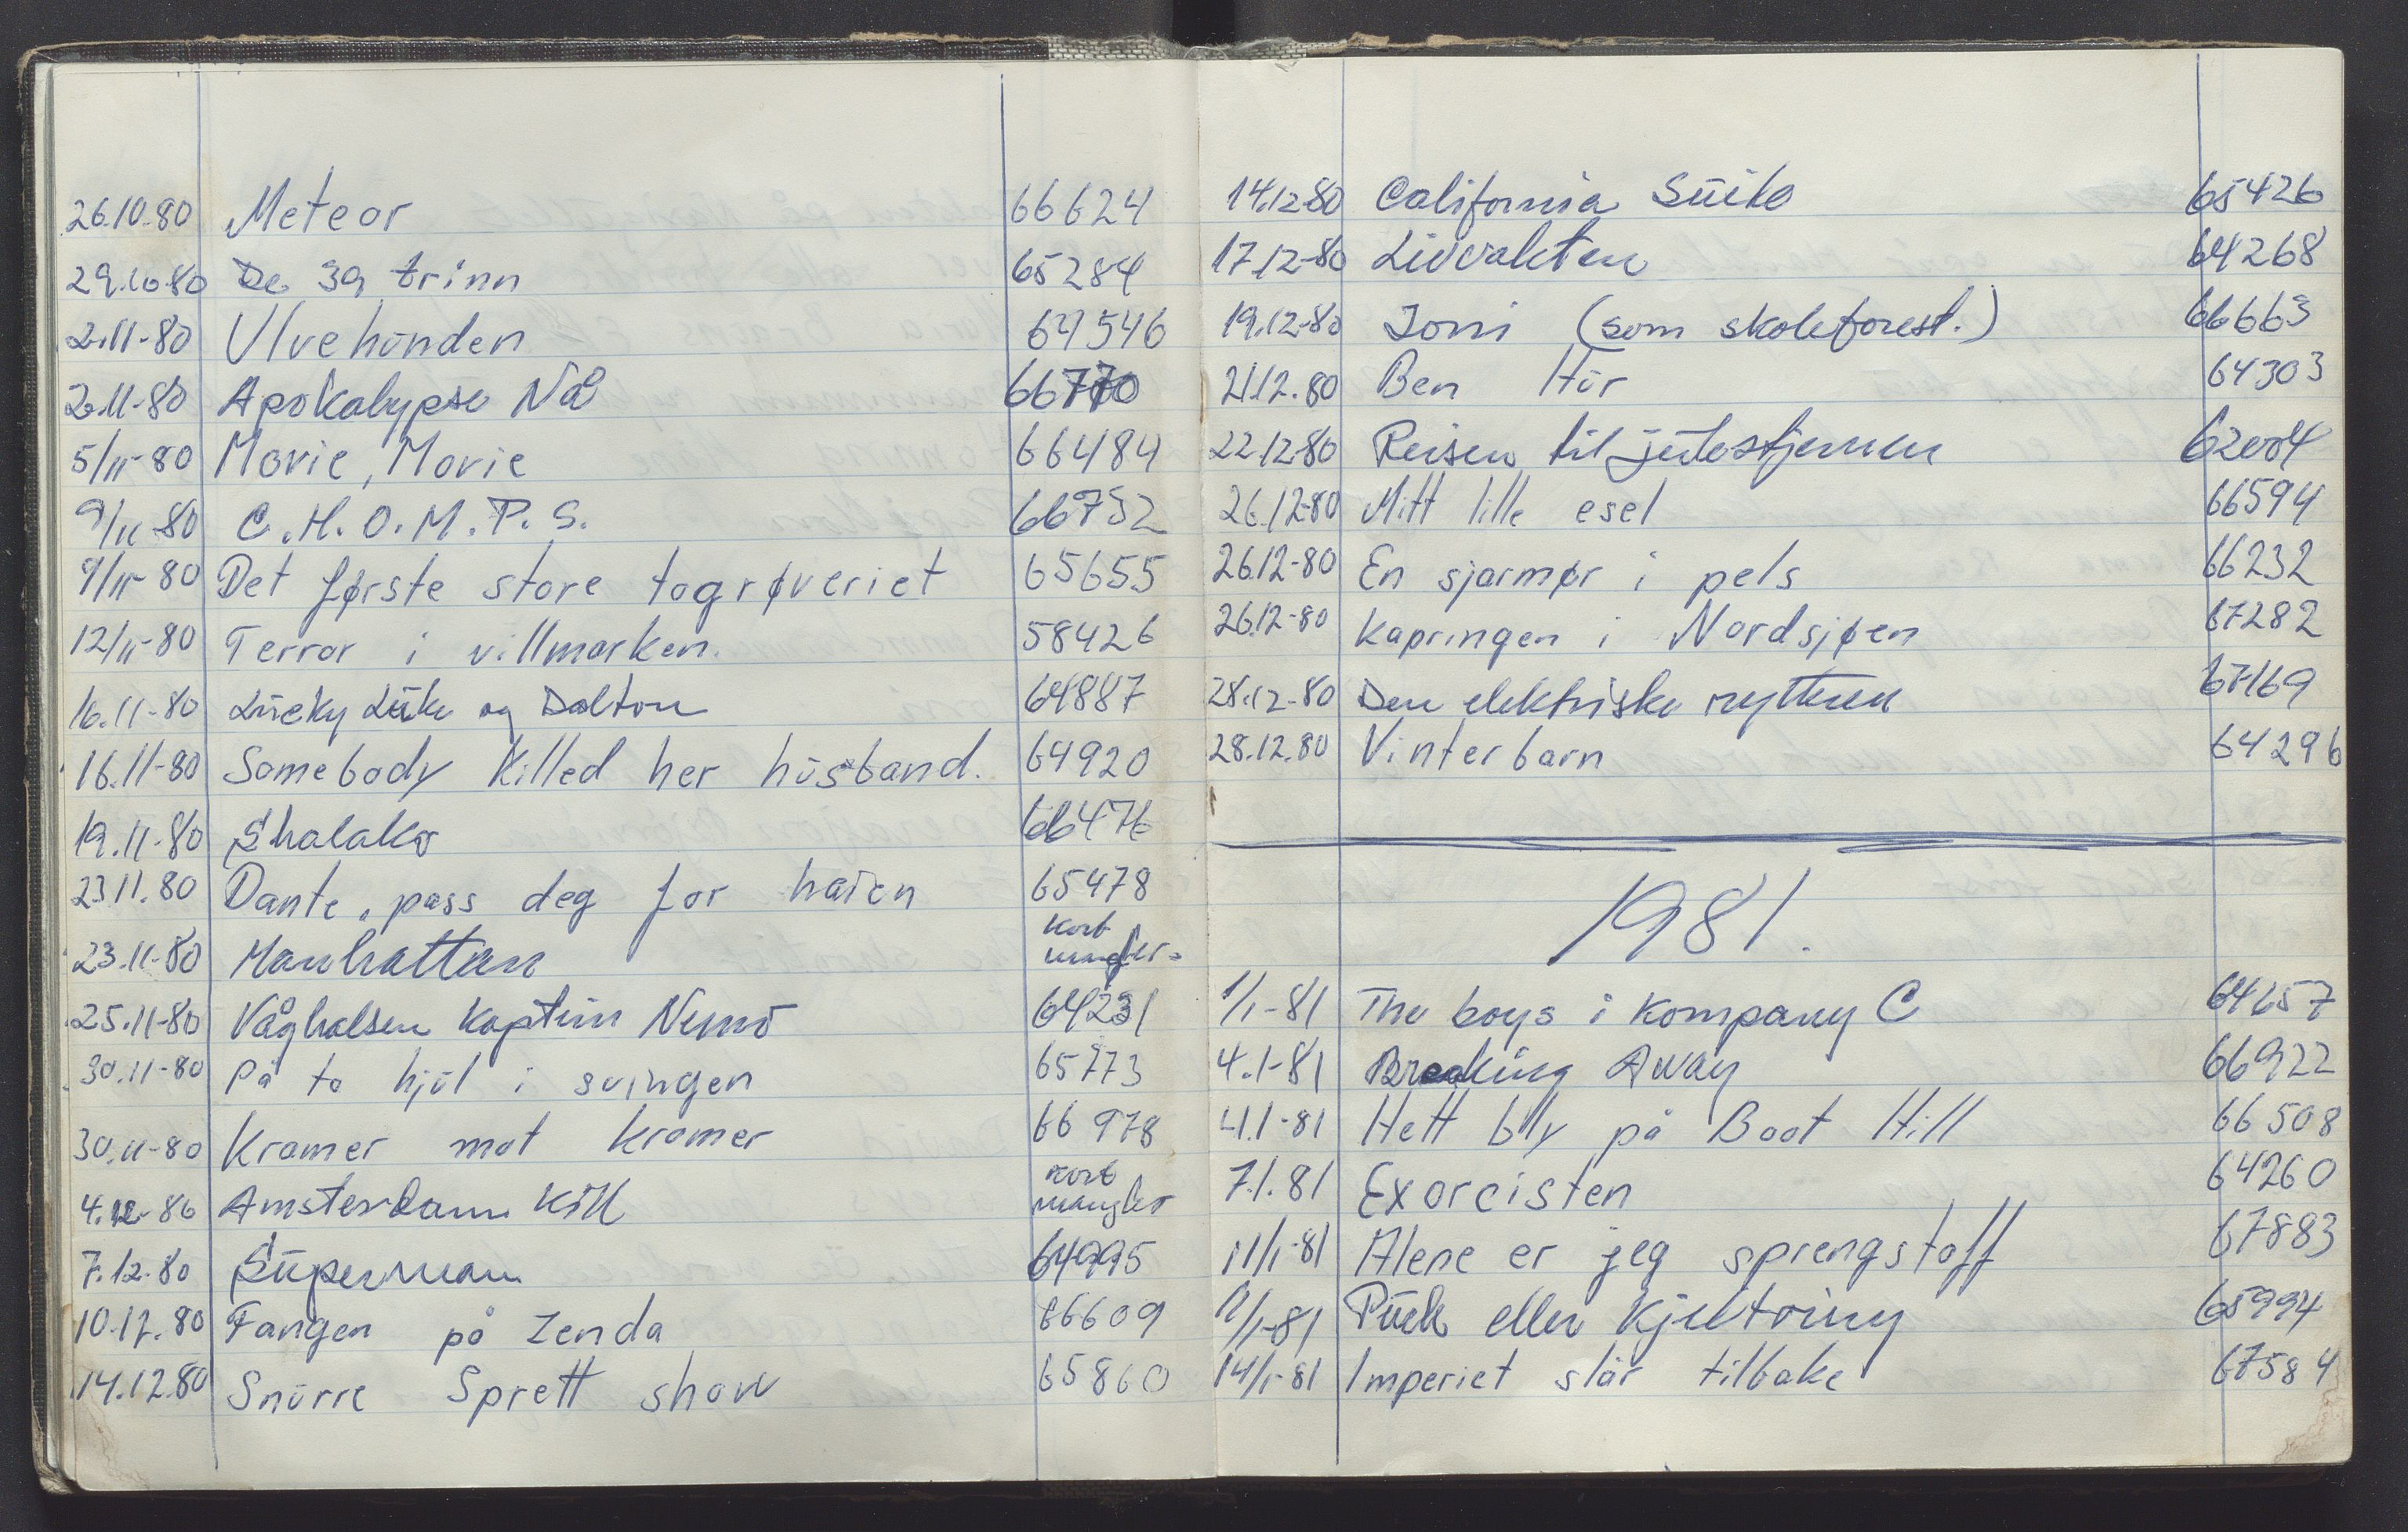 26.10.80 Meteor 66624
29.10.80 De 39 trinn 65284
2.11-80 Ulvehunden 64546
2.11-80 Apokalypse Nå 66770
5/11-80 Movie, Movie 66484
9/11-80 C.H.O.M.P.S. 66752
9/11-80 Det første store togrøveriet 65655
12/11-80 Terror i villmarken. 58426
16.11-80 Lucky Luke og Dalton 64887
16.11-80 Somebody Killed her husband. 64920
19.11-80 Shalako 66476
23.11.80 Dante, pass deg for haien 65478
23.11-80 Manhattan kort mangler
25.11-80 Våghalsen Kaptein Nemo 64231
30.11-80 På to hjul i svingen 65773
30.11-80 Kramer mot Kramer 66978
4.12-80 Amsterdam Kill kort mangler
7.12.80 Superman 64995
10.12.80 Fangen på Zenda 66609
14.12.80 Snurre Sprett show 65860
14.12-80 California Suite 65426
17.12-80 Livvakten 64268
19.12-80 Joni (som skoleforest.) 66663
21.12.80 Ben Hur 64303
22.12-80 Reisen til julestjernen 62004
26.12-80 Mitt lille esel 66594
26.12-80 En sjarmør i pels 66232
26.12-80 Kapringen i Nordsjøen 67282
28.12-80 Den elektriske rytteren 67169
28.12.80 Vinterbarn 64296
1981.
1/1-81 The boys i Kompany C 64657
4.1-81 Breaking Away 66922
4.1-81 Hett bly på Boot Hill 66508
7.1.81 Exorcisten 64260
11/1-81 Alene er jeg sprengstoff 67883
11/1-81 Puck eller Kjeltring 65994
14/1-81 Imperiet slår tilbake 67584